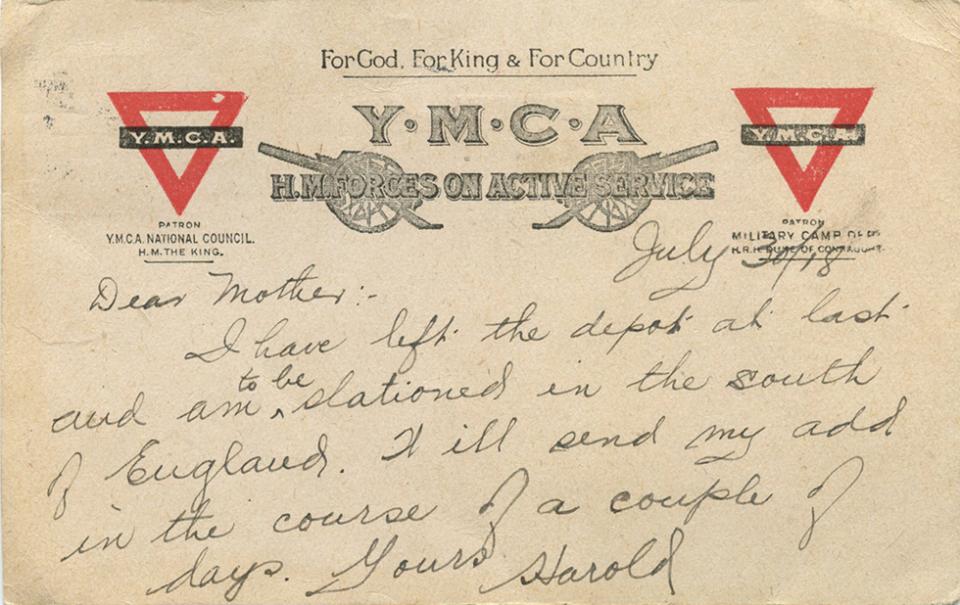 For God, For King & For Country
Y·M·C·A
H.M. FORCES ON ACTIVE SERVICE
Y.M.C.A.
PATRON
Y.M.C.A. NATIONAL COUNCIL.
H.M. THE KING.
Y.M.C.A.
PATRON
MILITARY CAMP DEPT
H.R.H. DUKE OF CONNAUGHT.
July 30/18
Dear Mother:-
I have left the depot at last
to be
and am ‸ stationed in the south
of England. Will send my add
in the course of a couple of
days. Yours Harold